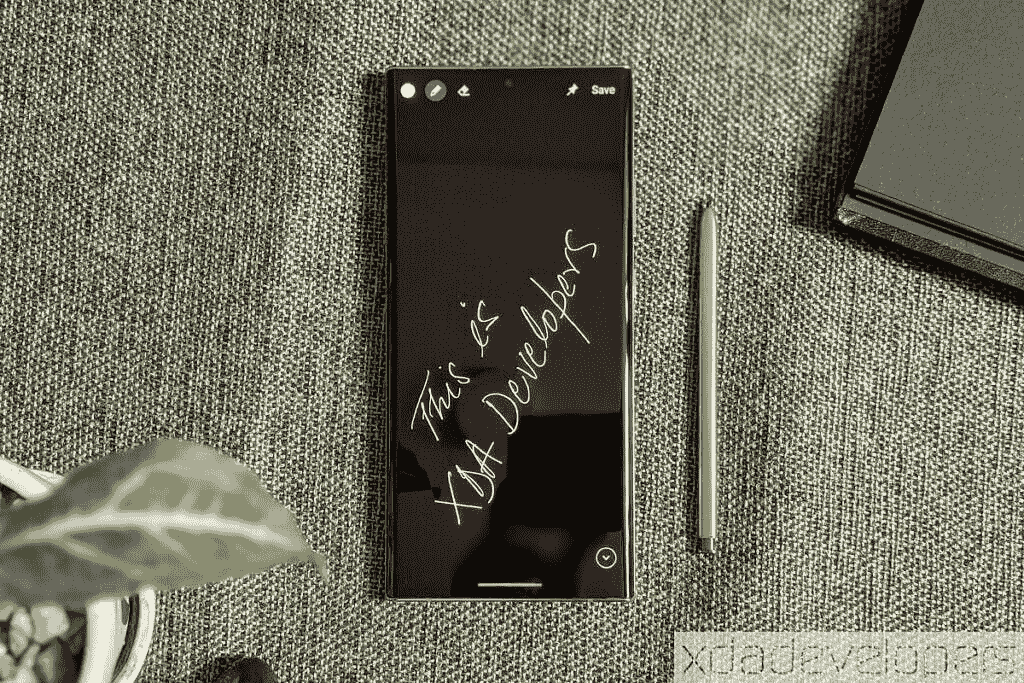 Save
This is
XDA Developers
xdadevelopers